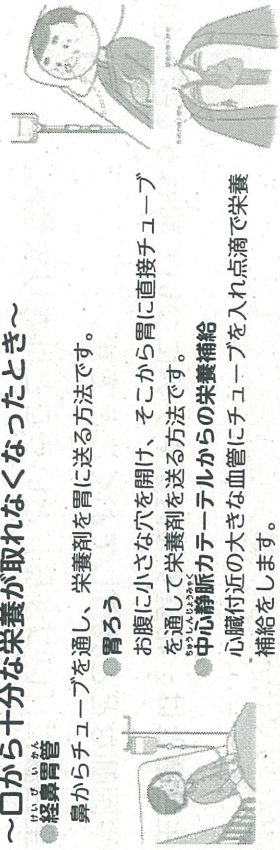 ～口から十分な栄養が取れなくなったとき～
けいびいかん
●経鼻胃管
鼻からチューブを通し、栄養剤を胃に送る方法です。
●胃ろう
お腹に小さな穴を開け、そこから胃に直接チューブ
を通して栄養剤を送る方法です。
ちゅうしんじょうみゃく
●中心静脈カテーテルからの栄養補給
心臓付近の大きな血管にチューブを入れ点滴で栄養
補給をします。